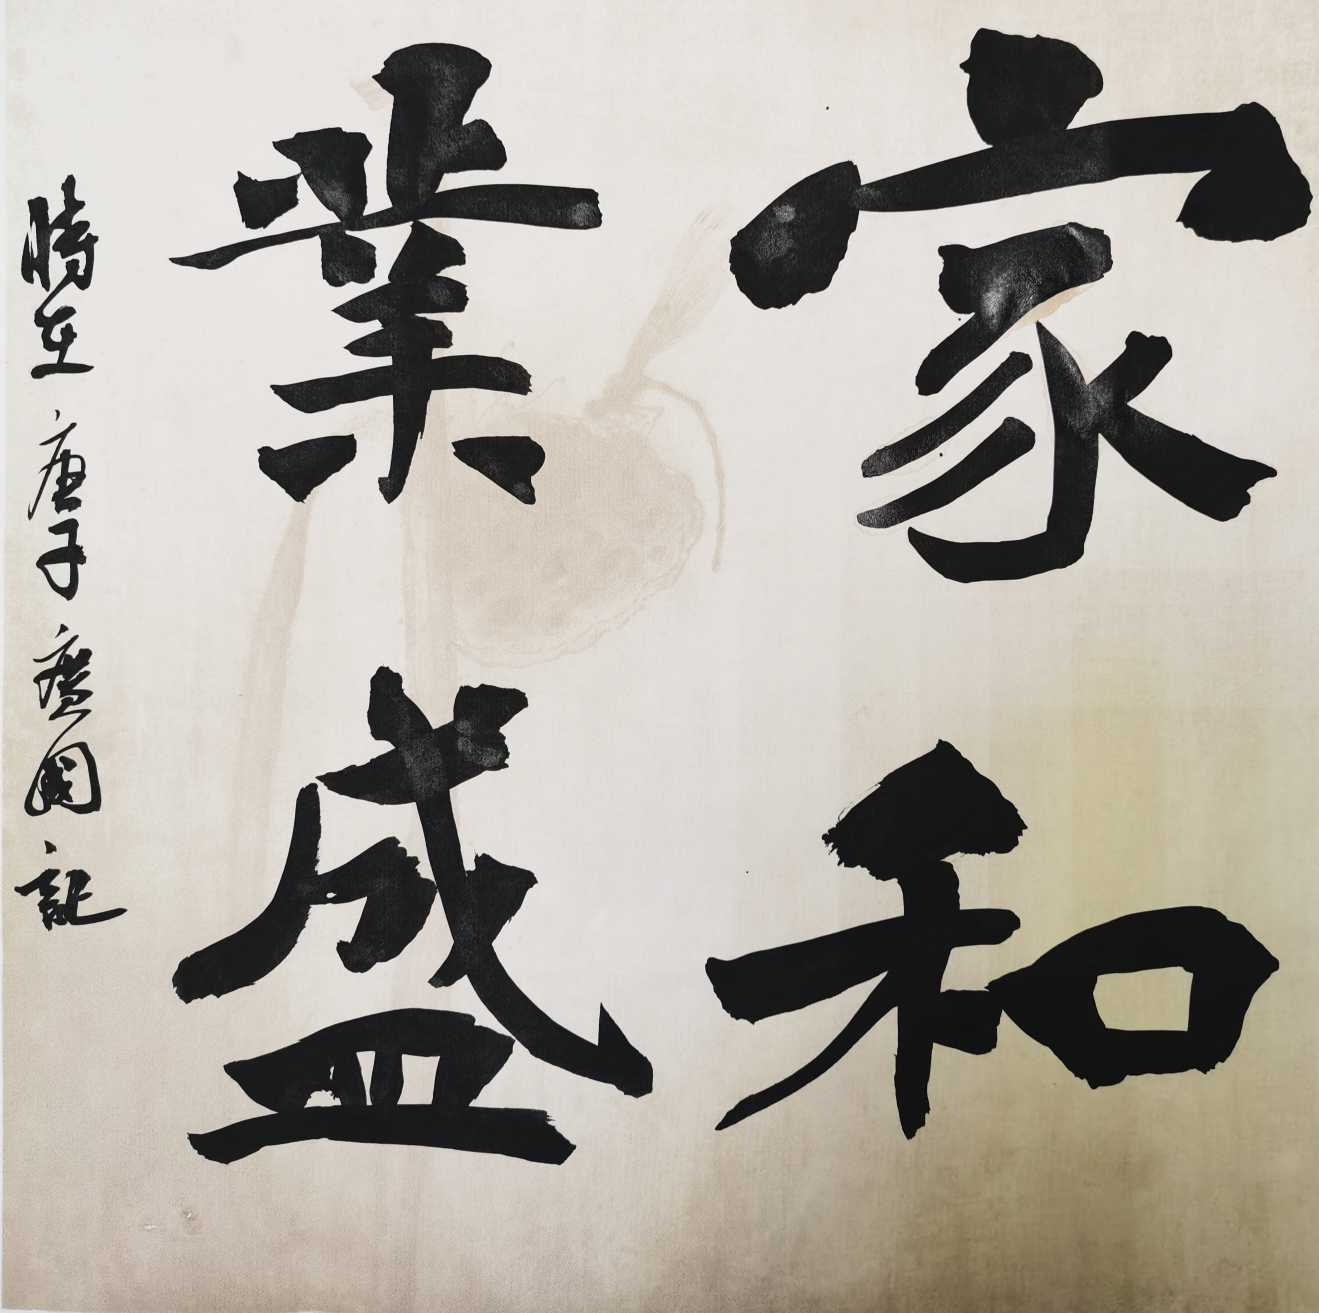 家和
業盛
時在庚子庆国記